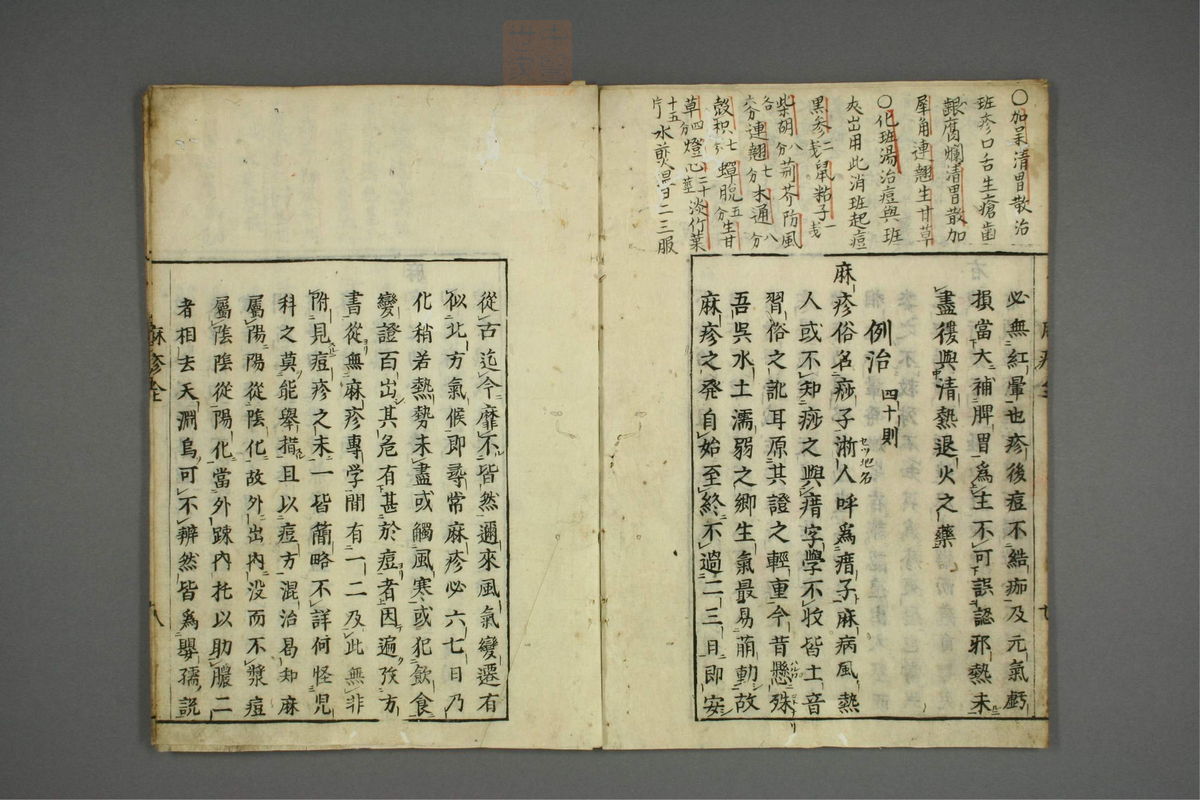 ○加味清胃散治
班疹口舌生瘡歯
齦腐爛清胃散加
犀角連翹生甘草
○化班湯治痘與班
夾出用此消班起痘
黒参二戔鼠粘子一戔
柴胡八分荊芥防風
各六分連翹七分木通八分
殻积七分蟬脱五分生甘
草四分燈心二十莖淡竹葉
十五片水煎温日二三服
必無紅暈也疹後痘不結痂及元氣虧
損當大補脾胃為主不可誤認邪熱未
盡復與清熱退火之藥
例治 四十則
麻疹俗名痧子浙人呼為瘄子麻病風熱
人或不知痧之與瘄字學不收皆土音
習俗之訛耳原其證之輕重今昔懸殊
吾吳水土濡弱之郷生氣最易萠動故
麻疹之発自始至終不過二三日即安
從古迄今靡不皆然邇來風氣變遷有
似北方氣候即尋常麻疹必六七日乃
化稍若熱勢未盡或觸風寒或犯飲食
變證百出其危有甚於痘者因遍攷方
書從無麻疹專学間有一二及此無非
附見痘疹之末一皆簡略不詳何怪児
科之莫能舉措且以痘方混治易知麻
屬陽陽從陰化故外出內没而不漿痘
屬陰陰從陽化當外踈內托以助膿二
者相去天淵烏可不辨然皆為嬰孺説
麻疹全
八